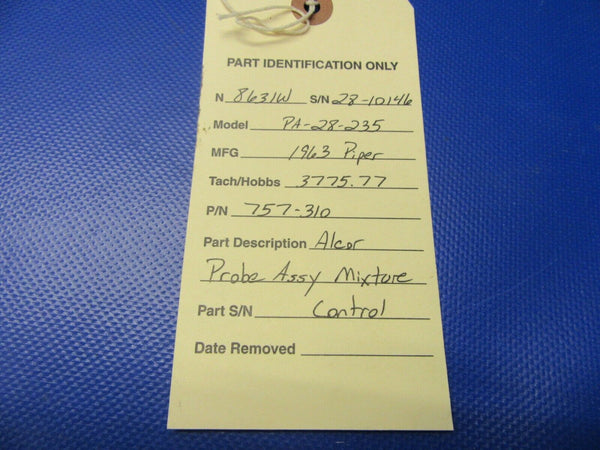 PART IDENTIFICATION ONLY
N 8631W S/N 28-10146
Model PA-28-235
MFG 1963 Piper
Tach/Hobbs 3775.77
P/N 757-310
Part Description Alcor
Probe Assy Mixture
Part S/N Control
Date Removed